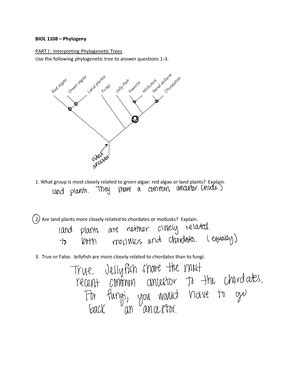 BIOL 1108 – Phylogeny
PART I: Interpreting Phylogenetic Trees
Use the following phylogenetic tree to answer questions 1-3.
Red algae
Green algae
Land plants
Fungi
Jelly fish
Insects
Mollusks
Chordates
ancestor
1. What group is most closely related to green algae: red algae or land plants? Explain.
land plants. They share a common ancestor (node)
2 Are land plants more closely related to chordates or mollusks? Explain.
land plants are neither closely related
to both mollusks and chordates. (equally)
3. True or False. Jellyfish are more closely related to chordates than to fungi.
True. Jellyfish share the most
recent common ancestor to the chordates.
For fungi, you would have to go
back an ancestor.